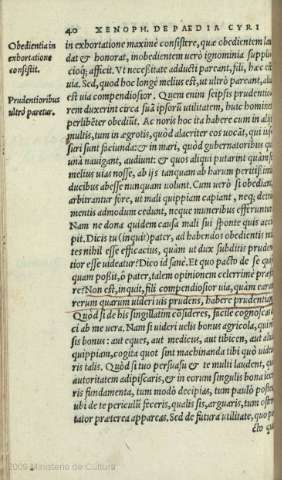 40 XENOPH. DE PAEDIA CYRI
Obedientia in
exhortatione
consistit.
Prudentioribus
ultrò paretur.
in exhortatione maximè consistere, quæ obedientem lau
dat & honorat, inobedientem uerò ignominia suppli
cioq; afficit. Vt necessitate adducti pareant, fili, hæc est
uia. Sed, quod hoc longè melius est, ut ultrò pareant, alia
est uia compendiosior. Quem enim seipsis prudentio‑
rem duxerint circa suã ipsorũ utilitatem, huic homines
perlibēter obediũt. Ac noris hoc ita habere cum in alijs
multis, tum in ægrotis, quòd alacriter eos uocãt, qui ius
suri sunt faciunda: & in mari, quòd gubernatoribus qui
unà nauigant, audiunt: & quos aliqui putarint quàm se
melius uias nosse, ab ijs tanquam ab harum peritissimis
ducibus abesse nunquam uolunt. Cum uerò si obediant
arbitrantur fore, ut mali quippiam capiant, neq; detri‑
mentis admodum cedunt, neque muneribus efferuntur.
Nam ne dona quidem causa mali sui sponte quis acci‑
pit. Dicis tu (inquit) pater, ad habendos obedientis mi
tes nihil esse efficacius, quàm ut dux subditis pruden
tior esse uideatur? Dico id sanè. Et quo pacto de se quis
quam possit, ô pater, talem opinionem celerrimè præsta
re? Non est, inquit, fili compendiosior uia, quàm earum
rerum quarum uideri uis prudens, habere prudentiam.
Quòd si de his singillatim cõsideres, facile cognosces
ci ab me uera. Nam si uideri uelis bonus agricola, quum
sis bonus: aut eques, aut medicus, aut tibicen, aut aliud
quippiam, cogita quot sint machinanda tibi quò uidea
ris talis. Quòd si tuo persuasu & te multi laudent, qui
autoritatem adipiscaris, & in eorum singulis bona iece
ris fundamenta, tum modò decipias, tum paulò post
ubi de te periculũ feceris, qualis sis, arguaris, tum osten
tator præterea appareas. Sed de futura utilitate, quo pa
cto quis
2009 Ministerio de Cultura